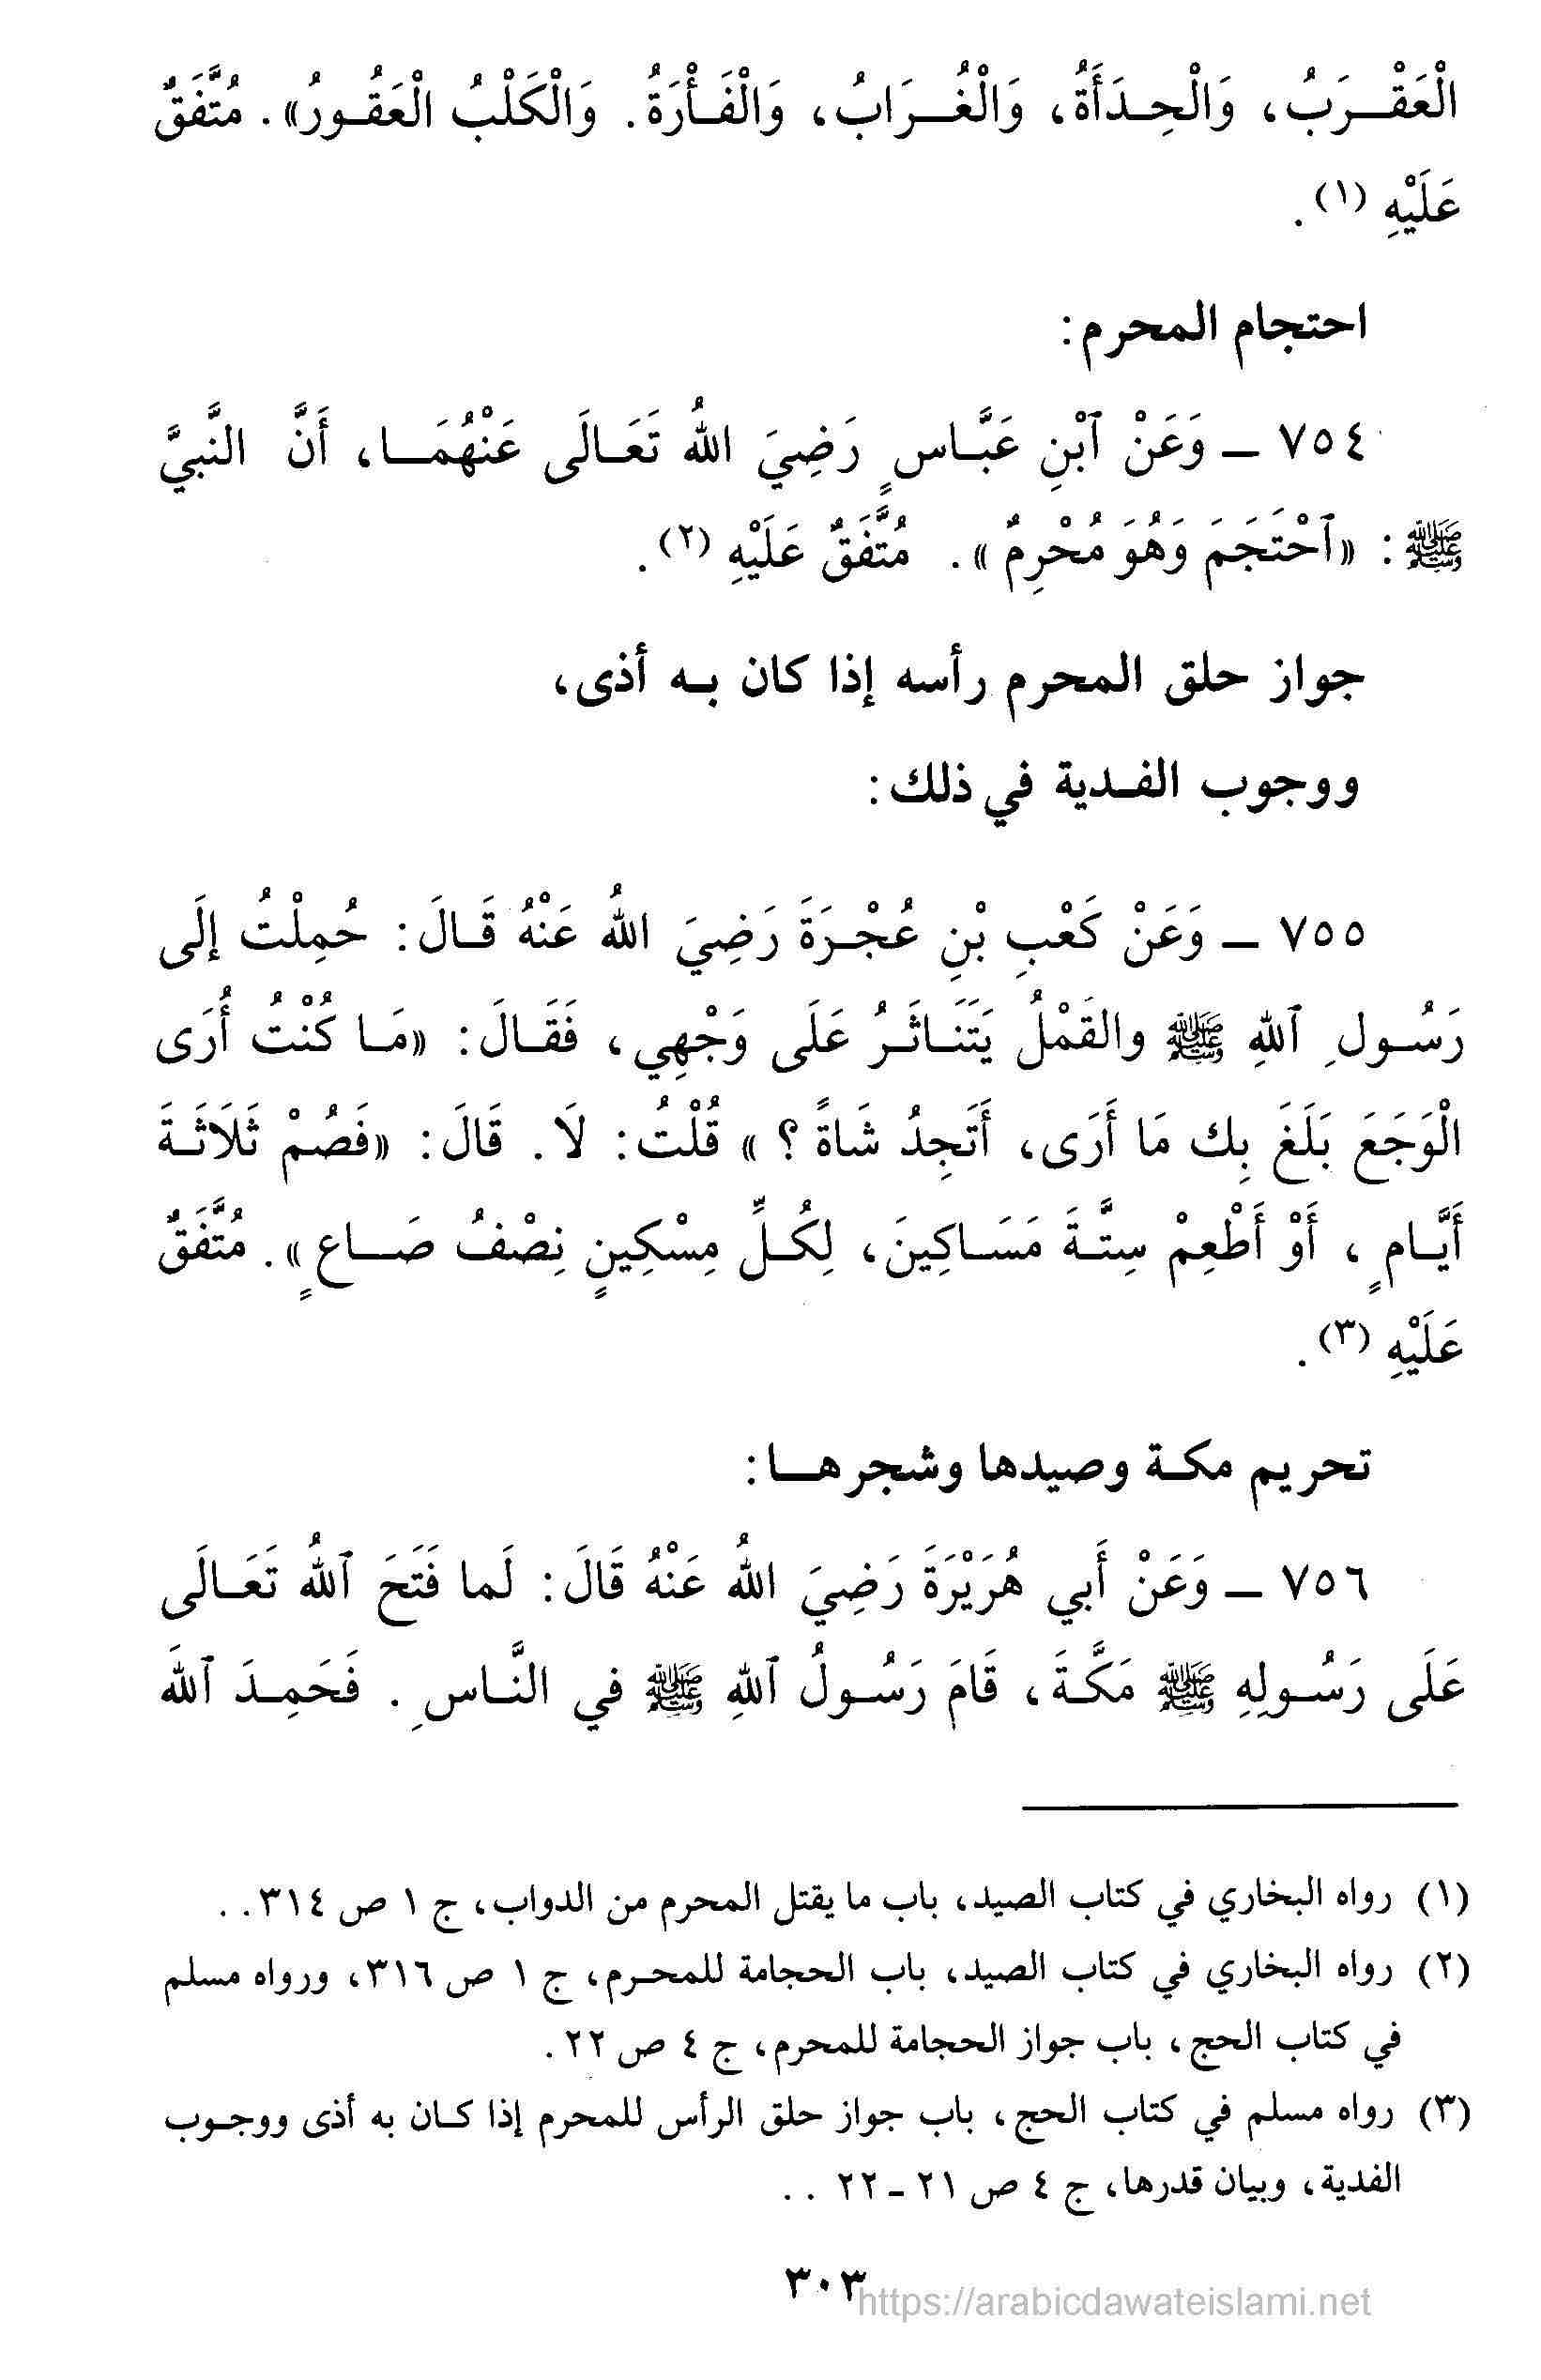 الْعَقْرَبُ، وَالْحِدَأَةُ، وَالْغُرَابُ، وَالْفَأْرَةُ. وَالْكَلْبُ الْعَقُورُ». مُتَّفَقٌ
عَلَيْهِ (١).
احتجام المحرم:
٧٥٤ ـ وَعَنْ ٱبْنِ عَبَّاسٍ رَضِيَ اللهُ تَعَالَى عَنْهُمَا، أَنَّ النَّبِيَّ
ﷺ: «ٱحْتَجَمَ وَهُوَ مُحْرِمٌ». مُتَّفَقٌ عَلَيْهِ (٢).
جواز حلق المحرم رأسه إذا كان به أذى،
ووجوب الفدية في ذلك:
٧٥٥ ـ وَعَنْ كَعْبِ بْنِ عُجْرَةَ رَضِيَ اللهُ عَنْهُ قَالَ: حُمِلْتُ إلَى
رَسُولِ ٱللهِ ﷺ والقَمْلُ يَتَنَاثَرُ عَلَى وَجْهِي، فَقَالَ: «مَا كُنْتُ أُرَى
الْوَجَعَ بَلَغَ بِك مَا أَرَى، أَتَجِدُ شَاةً؟» قُلْتُ: لَا. قَالَ: «فَصُمْ ثَلَاثَةَ
أَيَّامٍ، أَوْ أَطْعِمْ سِتَّةَ مَسَاكِينَ، لِكُلِّ مِسْكِينٍ نِصْفُ صَاعٍ». مُتَّفَقٌ
عَلَيْهِ (٣).
تحريم مكة وصيدها وشجرها:
٧٥٦ ـ وَعَنْ أَبي هُرَيْرَةَ رَضِيَ اللهُ عَنْهُ قَالَ: لَما فَتَحَ ٱللهُ تَعَالَى
عَلَى رَسُولِهِ ﷺ مَكَّةَ، قَامَ رَسُولُ ٱللهِ ﷺ في النَّاسِ. فَحَمِدَ ٱللهَ
(١) رواه البخاري في كتاب الصيد، باب ما يقتل المحرم من الدواب، ج ١ ص ٣١٤..
(٢) رواه البخاري في كتاب الصيد، باب الحجامة للمحرم، ج ١ ص ٣١٦، ورواه مسلم
في كتاب الحج، باب جواز الحجامة للمحرم، ج ٤ ص ٢٢.
(٣) رواه مسلم في كتاب الحج، باب جواز حلق الرأس للمحرم إذا كان به أذى ووجوب
الفدية، وبيان قدرها، ج ٤ ص ٢١ ـ ٢٢ ..
٣٠٣
https://arabicdawateislami.net